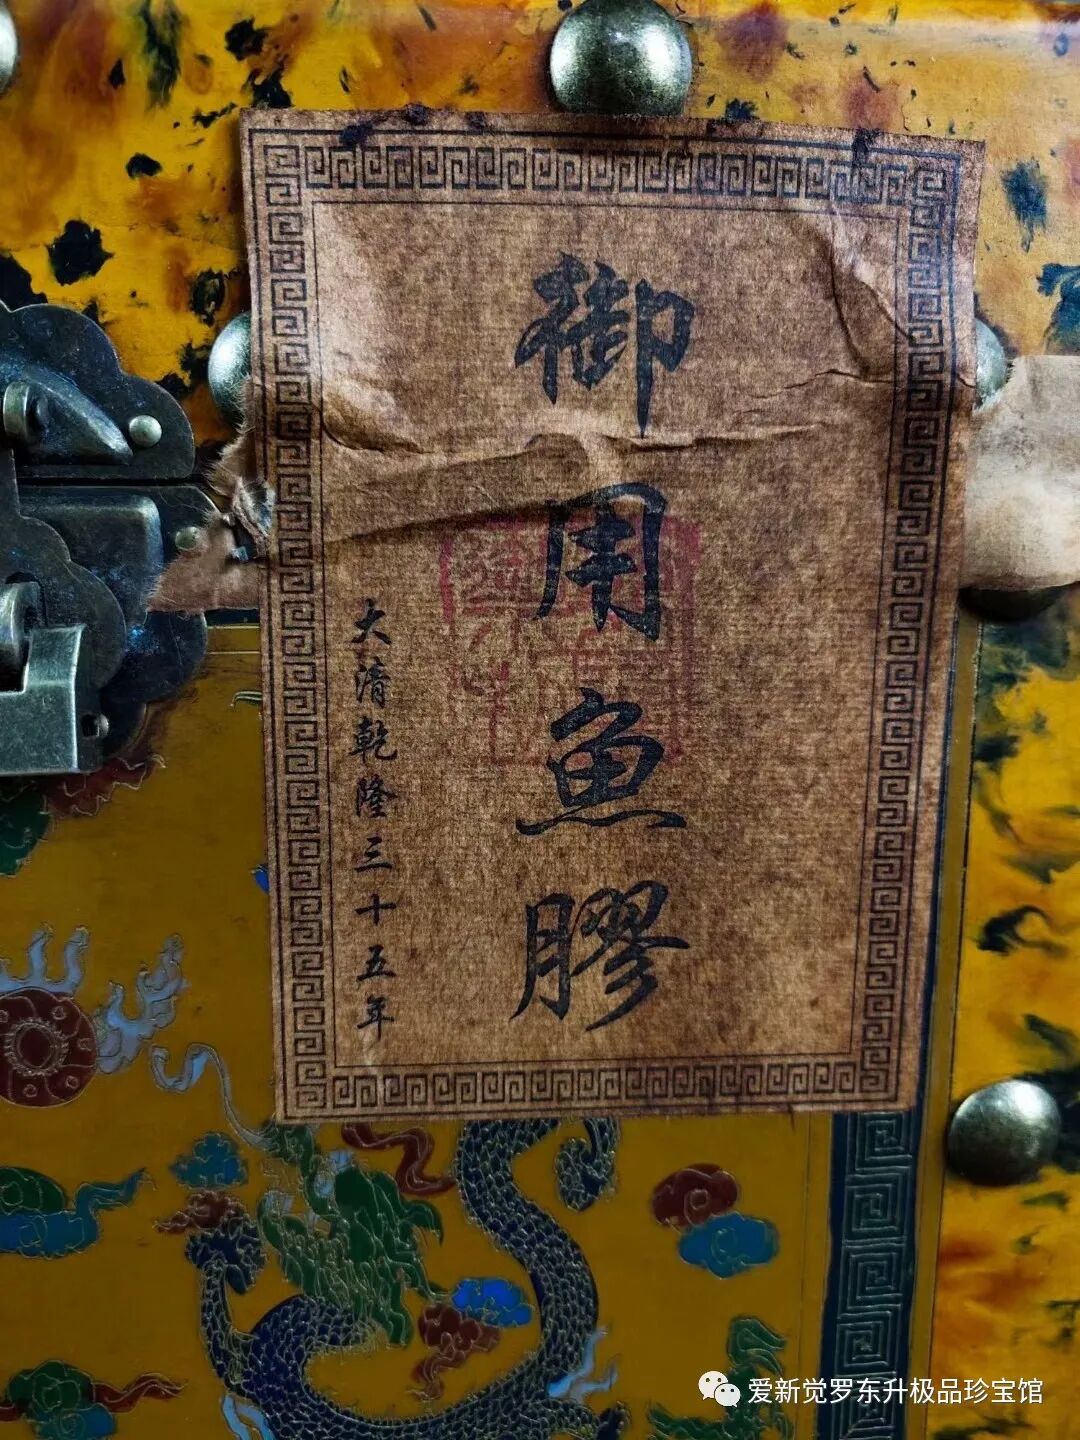 御用魚膠
大清乾隆三十五年
爱新觉罗东升极品珍宝馆